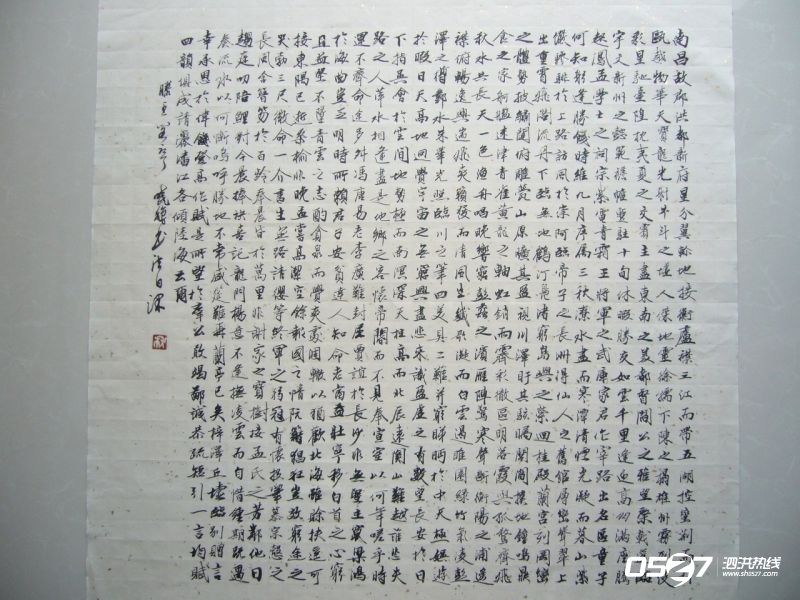 南昌故郡洪都新府星分翼軫地接衡廬襟三江而帶五湖控蠻荊而引
甌越物華天寶龍光射牛斗之墟人傑地靈徐孺下陳蕃之榻雄州霧列俊
彩星馳臺隍枕夷夏之交賓主盡東南之美都督閻公之雅望棨戟遙臨
宇文新州之懿範襜帷暫駐十旬休暇勝友如雲千里逢迎高朋滿座騰蛟
起鳳孟學士之詞宗紫電青霜王將軍之武庫家君作宰路出名區童子
何知躬逢勝餞時維九月序屬三秋潦水盡而寒潭清煙光凝而暮山紫
儼驂騑於上路訪風景於崇阿臨帝子之長洲得仙人之舊館層巒聳翠上
出重霄飛閣流丹下臨無地鶴汀鳧渚窮島嶼之縈回桂殿蘭宮列岡巒
之體勢披繡闥俯雕甍山原曠其盈視川澤盱其駭矚閭閻撲地鐘鳴鼎
食之家舸艦迷津青雀黃龍之軸虹銷雨霽彩徹區明落霞與孤鶩齊飛
秋水共長天一色漁舟唱晚響窮彭蠡之濱雁陣驚寒聲斷衡陽之浦遙
襟俯暢逸興遄飛爽籟發而清風生纖歌凝而白雲遏睢園綠竹氣凌彭
澤之樽鄴水朱華光照臨川之筆四美具二難並窮睇眄於中天極娛遊
於暇日天高地迥覺宇宙之無窮興盡悲來識盈虛之有數望長安於日
下指吳會於雲間地勢極而南溟深天柱高而北辰遠關山難越誰悲失
路之人萍水相逢盡是他鄉之客懷帝閽而不見奉宣室以何年嗟乎時
運不齊命途多舛馮唐易老李廣難封屈賈誼於長沙非無聖主竄梁鴻
於海曲豈乏明時所賴君子安貧達人知命老當益壯寧移白首之心窮
且益堅不墜青雲之志酌貪泉而覺爽處涸轍以猶歡北海雖賒扶遙可
接東隅已逝桑榆非晚孟嘗高潔空餘報國之情阮籍猖狂豈效窮途之
哭勃三尺微命一介書生無路請纓等終軍之弱冠有懷投筆慕宗愨之
長風舍簪笏於百齡奉晨昏於萬里非謝家之寶樹接孟氏之芳鄰他日
趨庭叨陪鯉對今晨捧袂喜託龍門楊意不逢撫凌雲而自惜鍾期既遇
奏流水以何慚嗚呼勝地不常盛筵難再蘭亭已矣梓澤丘墟臨別贈言
幸承恩於偉餞登高作賦是所望於羣公敢竭鄙誠恭疏短引一言均賦
四韻俱成請灑潘江各傾陸海云爾
滕王閣序
0527 泗洪热线
www.sh0527.com